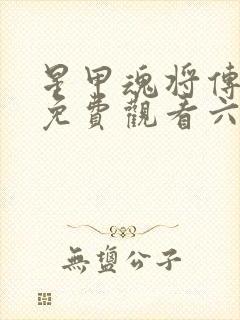 星甲魂將傳
免費觀看六
無鹽公子